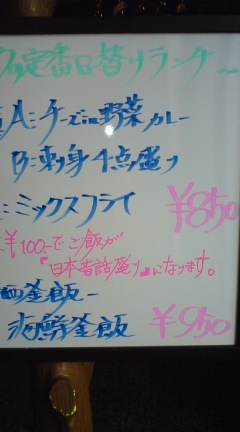 定番日替りランチ~
A:チーズin野菜カレー
B:刺身4点盛り
:ミックスフライ ¥850
¥100-でご飯が
『日本昔話盛り』になります。
釜飯-
海鮮釜飯 ¥950